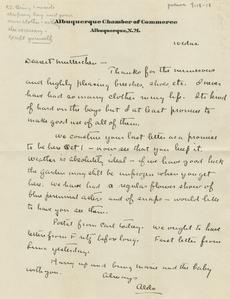 Albuquerque Chamber of Commerce
Albuquerque, N.M.
Dearest mutterchen -
Thanks for the numerous
and highly pleasing breeches, shoes etc. I never
have had so many clothes in my life. Its kind
of hard on the boys but I at least promise to
make good use of all of them.
We construe your last letter as a promise
to be here Oct 1 - now see that you keep it.
Weather is absolutely ideal - if we have good luck
the garden may still be unfrozen when you get
here. We have had a regular flower show of
blue perennial asters and of snaps - would like
to have you see them.
Postal from Carl today. We ought to have
letter from Fritz before long. Ferst letter from
Luna yesterday.
Hurry up and bring Marie and the baby
with you.
Always
Aldo